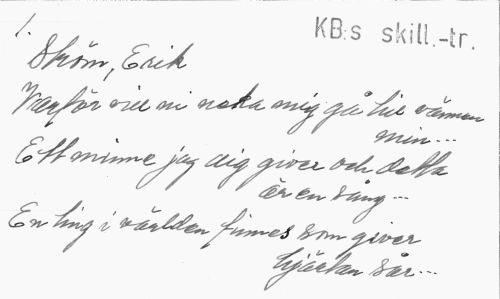 1.
KB:s skill.-tr.
Ström, Erik
Varför vill ni neka mig gå till vännen
min...
Ett minne jag dig giver och detta
är en sång...
En ting i världen finnes som giver
hjärtan sår...